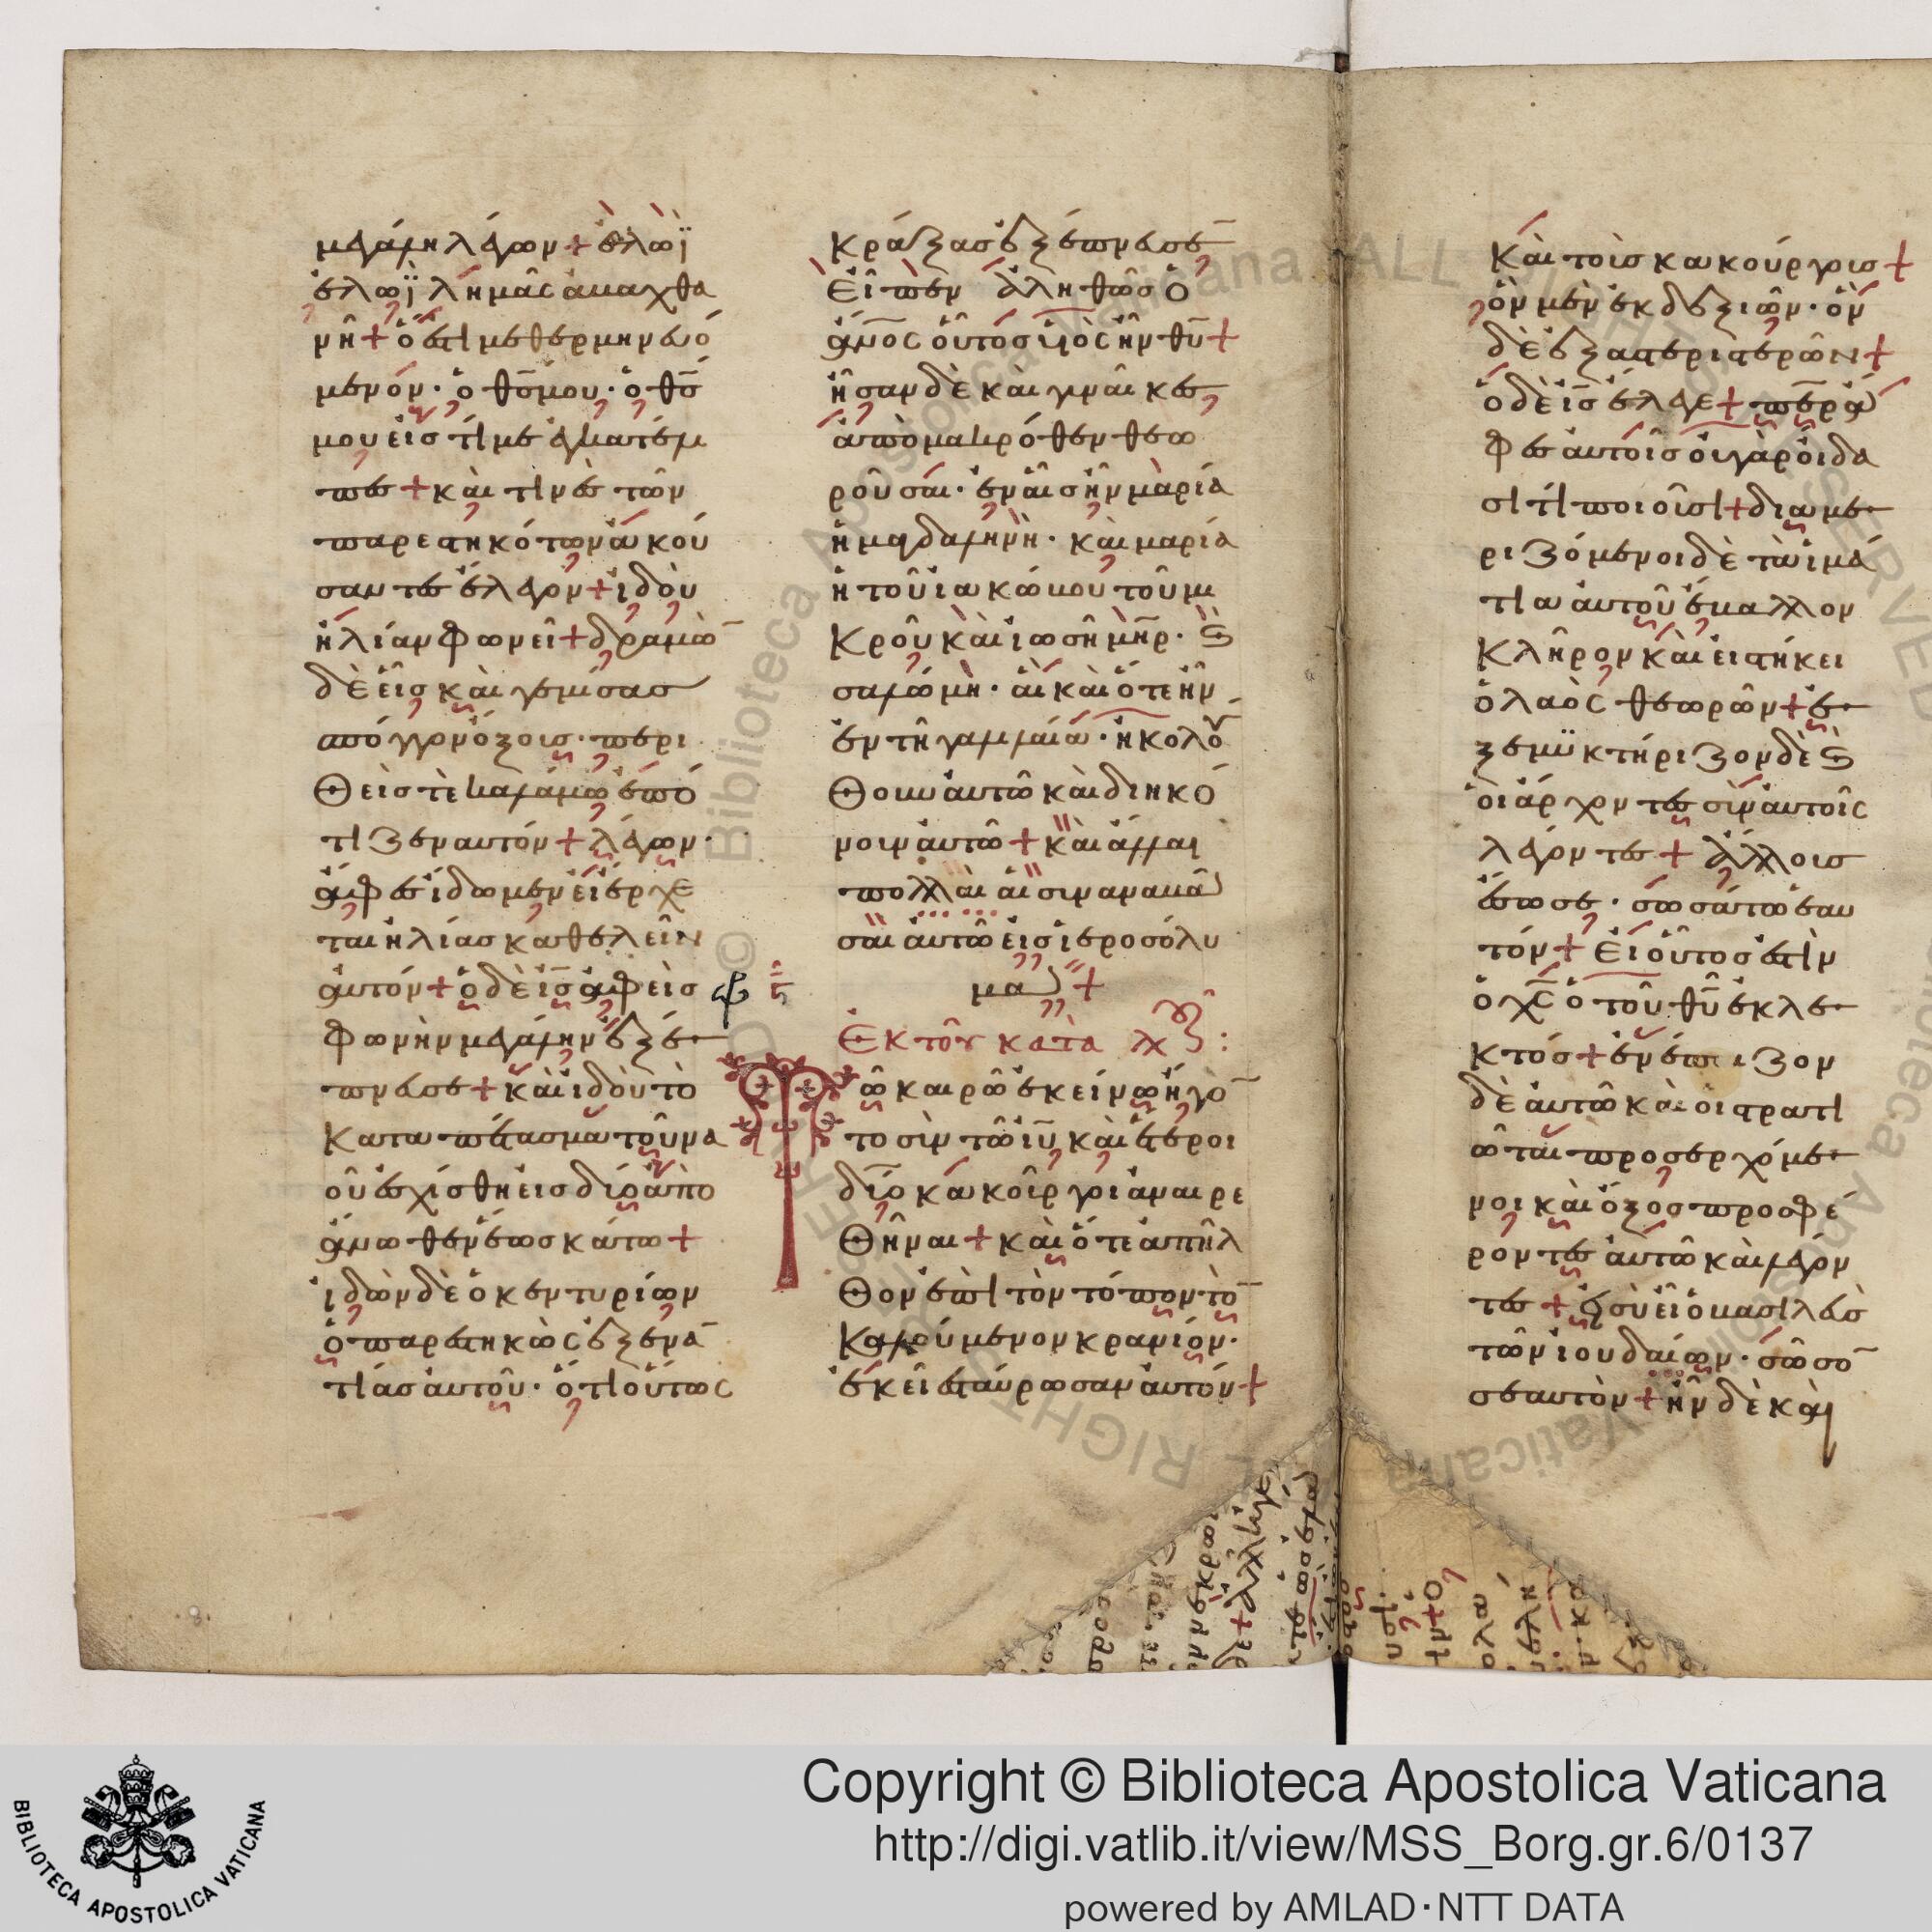 μεγάλη λέγων + ἐλωῒ
ἐλωῒ λημᾶς ἀβαχθα
νῆ + ὅ ἐστι μεθερμηνευό
μενόν · ὁ θς μου · ὁ θς
μου εἰς τί με ἐγκατέλι
πες + καί τινες τῶν
παρεστηκότων ἀκού
σαντες ἔλεγον + ἰδοὺ
ἠλίαν φωνεῖ + δραμὼ
δὲ εἷς καὶ γεμίσας
σπόγγον ὄξους · περι
θεὶς τὲ καλάμω ἐπό
τιζεν αυτόν + λέγων ·
ἄφες ἴδωμεν εἰ ἔρχε
ται ἠλίας καθελεῖν
αὐτόν + ὁ δὲ ις ἀφεὶς
φωνὴν μεγάλην ἐξέ
πνευσε + καὶ ιδοὺ τὸ
καταπέτασμα τοῦ να
οῦ ἐσχίσθη εις δύο ἀπὸ
ἄνωθεν ἕως κάτω +
ἰδὼν δὲ ὁ κεντυρίων
ὁ παρεστηκὼς ἐξ ἐνα
τίας αὐτοῦ · ὅτι οὕτως
κράξας ἐξέπνευσε
Εἶπεν ἀληθῶς ὁ
ἄνος οὗτος υἱὸς ἦν θυ +
ἦσαν δὲ καὶ γυναῖκες
ἀπὸ μακρόθεν θεω
ροῦσαι · ἐν αἷς ἦν μαρία
ἡ μαγδαληνὴ · καὶ μαρία
ἡ τοῦ ιακώβου τοῦ μι
κροῦ καὶ ιωσῆ μηρ · Ϛ
σαλώμη · αἳ καὶ ὅτε ἦν
ἐν τῆ γαλιλαία · ἠκολού
θουν αὐτῶ καὶ διηκό
νουν αὐτῶ + καὶ ἄλλαι
πολλαὶ αἱ συναναβᾶ
σαι αὐτῶ εἰς ἱεροσόλυ
μα +
Ἐκ τοῦ κατὰ λουκ :
Τῶ καιρῶ ἐκείνω ἤγο
το σὺν τῶ ιυ καὶ ἕτεροι
δύο κακοῦργοι ἀναιρε
θῆναι + καὶ ὅτε ἀπῆλ
θον ἐπὶ τὸν τόπον τὸ
καλούμενον κρανίον ·
ἐκεῖ ἐσταύρωσαν αὐτόν +
Καὶ τοὺς κακούργους +
ὃν μὲν ἐκ δεξιῶν · ὃν
δὲ ἐξ αριστερῶν +
ὁ δὲ ις ἔλεγε + περ ἄ
φες αὐτοῖς οὐ γὰρ οἴδα
σι τί ποιοῦσι + διαμε
ριζόμενοι δὲ τὰ ιμά
τια αὐτοῦ ἔβαλλον
κλῆρον καὶ εἱστήκει
ὁ λαὸς θεωρῶν + ἐ
ξεμϋκτήριζον δὲ Ϛ
οἱ ἄρχοντες σὺν αὐτοῖς
λέγοντες + ἄλλους
ἔσωσε · σωσάτω ἑαυ
τόν + εἰ οὗτός ἐστιν
ὁ χς ὁ τοῦ θυ ἐκλε
κτός + ἐνέπαιζον
δὲ αὐτῶ καὶ οἱ στρατι
ῶται προσερχόμε
νοι καὶ ὄξος προσφέ
ροντες αὐτῶ καὶ λέγον
τες + εἰ σὺ εἶ ὁ βασιλεὺς
τῶν ιουδαίων · σῶσο
σεαυτὸν + ἦν δὲ καὶ
BIBLIOTECA APOSTOLICA VATICANA
Copyright © Biblioteca Apostolica Vaticana
http://digi.vatlib.it/view/MSS_Borg.gr.6/0137
powered by AMLAD·NTT DATA